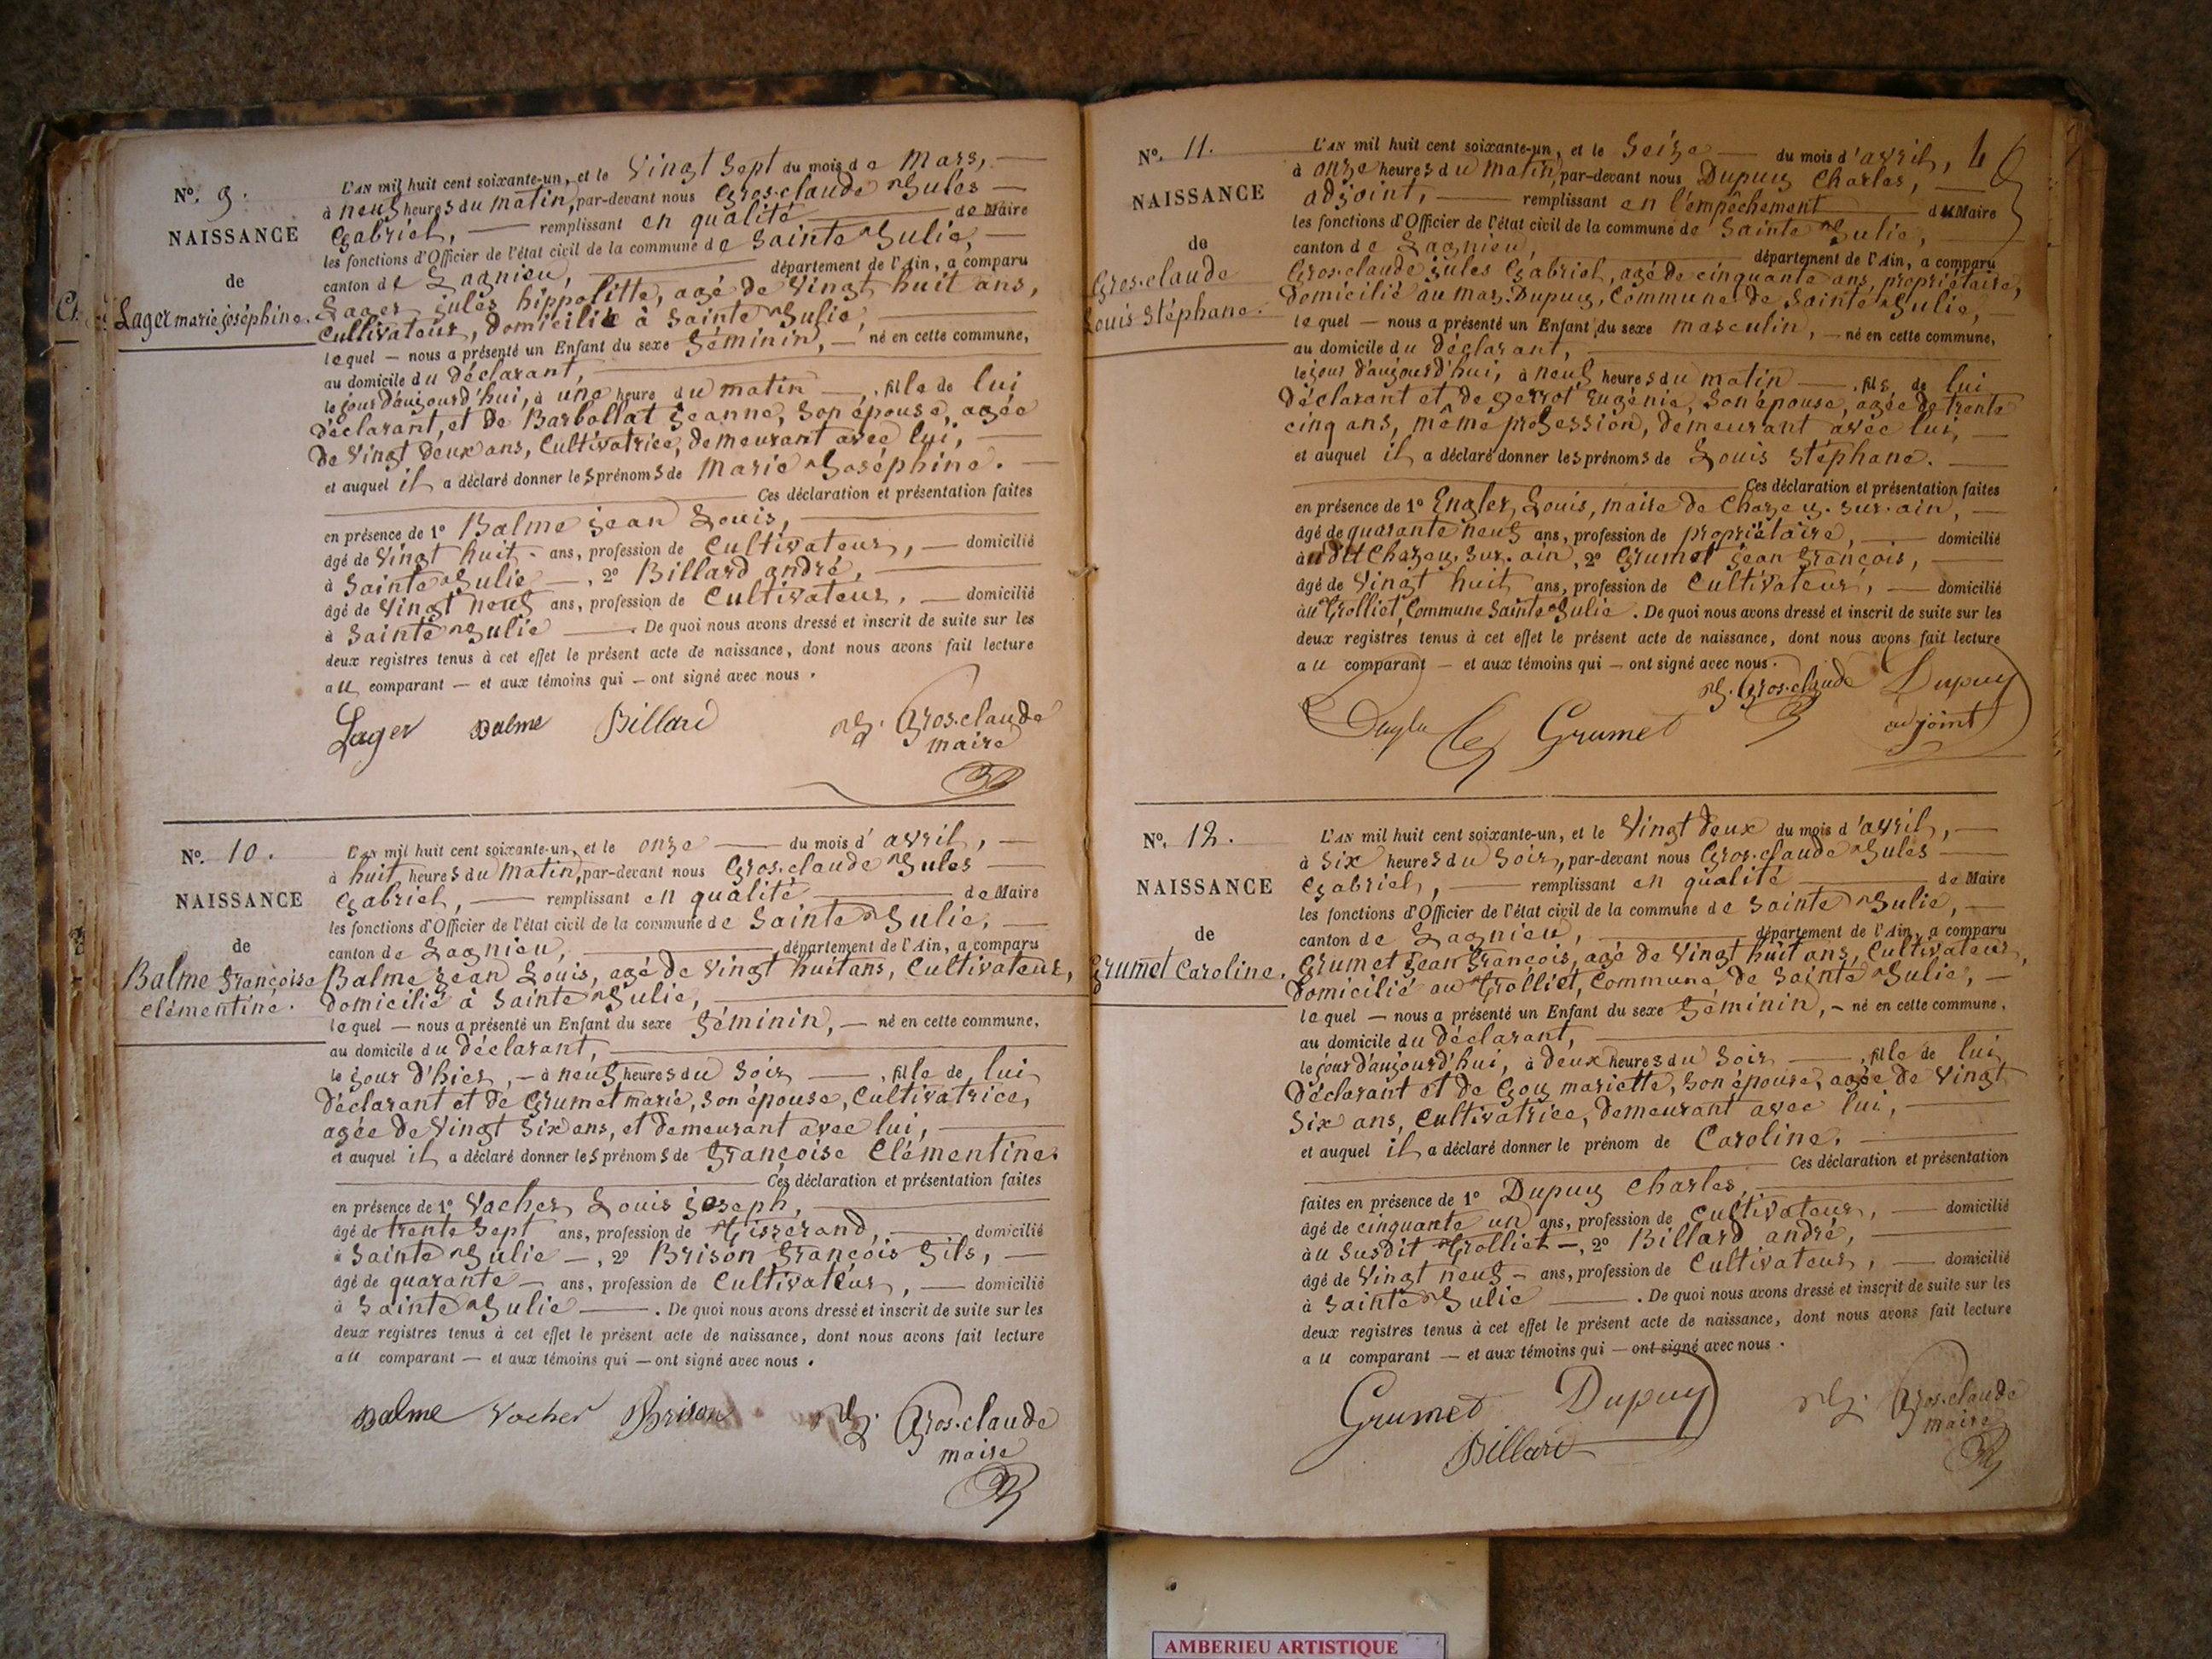 No. 9.
NAISSANCE
de
Lager marie joséphine.
L'AN mil huit cent soixante-un, et le Vingt Sept du mois de Mars,
à neuf heures du matin, par-devant nous Gros-claude Jules
Gabriel, remplissant en qualité de Maire
les fonctions d'Officier de l'état civil de la commune de Sainte Julie,
canton de Lagnieu, département de l'Ain, a comparu
Lager jules hippolitte, agé de Vingt huit ans,
Cultivateur, domicilié à Sainte Julie,
lequel — nous a présenté un Enfant du sexe féminin, — né en cette commune,
au domicile du déclarant,
le jour d'aujourd'hui, à une heure du matin —, fille de lui
déclarant, et de Barbollat jeanne, son épouse, agée
de Vingt deux ans, Cultivatrice, demeurant avec lui,
et auquel il a déclaré donner les prénoms de Marie Joséphine.
Ces déclaration et présentation faites
en présence de 1° Balme jean Louis,
âgé de Vingt huit - ans, profession de Cultivateur, — domicilié
à Sainte Julie —, 2° Billard andré,
âgé de Vingt neuf ans, profession de Cultivateur, — domicilié
à Sainte Julie — . De quoi nous avons dressé et inscrit de suite sur les
deux registres tenus à cet effet le présent acte de naissance, dont nous avons fait lecture
au comparant — et aux témoins qui — ont signé avec nous.
Lager Balme Billard J. G. Gros-claude
maire
No. 10.
NAISSANCE
de
Balme françoise
clémentine.
L'AN mil huit cent soixante-un, et le onze du mois d'avril,
à huit heures du matin, par-devant nous Gros-claude Jules
Gabriel, remplissant en qualité de Maire
les fonctions d'Officier de l'état civil de la commune de Sainte Julie,
canton de Lagnieu, département de l'Ain, a comparu
Balme jean Louis, agé de Vingt huit ans, Cultivateur,
domicilié à Sainte Julie,
lequel — nous a présenté un Enfant du sexe féminin, — né en cette commune,
au domicile du déclarant,
le jour d'hier, — à neuf heures du soir —, fille de lui
déclarant et de Grumet marie, son épouse, Cultivatrice,
agée de Vingt six ans, et demeurant avec lui,
et auquel il a déclaré donner les prénoms de françoise Clémentine.
Ces déclaration et présentation faites
en présence de 1° Vacher Louis joseph,
âgé de trente sept ans, profession de Tisserand, — domicilié
à Sainte Julie —, 2° Brison françois Gils,
âgé de quarante — ans, profession de Cultivateur, — domicilié
à Sainte Julie — . De quoi nous avons dressé et inscrit de suite sur les
deux registres tenus à cet effet le présent acte de naissance, dont nous avons fait lecture
au comparant — et aux témoins qui — ont signé avec nous.
Balme Vacher Brison J. G. Gros-claude
maire
4
No. 11.
NAISSANCE
de
Gros-claude
Louis Stéphane.
L'AN mil huit cent soixante-un, et le Seize du mois d'avril,
à onze heures du matin, par-devant nous Dupuy Charles,
adjoint, remplissant en l'empêchement du Maire
les fonctions d'Officier de l'état civil de la commune de Sainte Julie,
canton de Lagnieu, département de l'Ain, a comparu
Gros-claude jules Gabriel, agé de cinquante ans, propriétaire,
domicilié au mas-Dupuy, Commune de Sainte Julie,
lequel — nous a présenté un Enfant du sexe masculin, — né en cette commune,
au domicile du déclarant,
le jour d'aujourd'hui, à neuf heures du matin —, fils de lui
déclarant et de perrot Eugénie, son épouse, agée de trente
cinq ans, même profession, demeurant avec lui,
et auquel il a déclaré donner les prénoms de Louis Stéphane.
Ces déclaration et présentation faites
en présence de 1° Engler, Louis, maire de Chazey-sur-ain,
âgé de quarante neuf ans, profession de propriétaire, — domicilié
audit Chazey-sur-ain, 2° Grumet jean françois,
âgé de Vingt huit ans, profession de Cultivateur, — domicilié
au Trolliet, Commune Sainte Julie. De quoi nous avons dressé et inscrit de suite sur les
deux registres tenus à cet effet le présent acte de naissance, dont nous avons fait lecture
au comparant — et aux témoins qui — ont signé avec nous.
J. G. Gros-claude Dupuy
Grumet adjoint
No. 12.
NAISSANCE
de
Grumet Caroline.
L'AN mil huit cent soixante-un, et le Vingt deux du mois d'avril,
à six heures du soir, par-devant nous Gros-claude Jules
Gabriel, remplissant en qualité de Maire
les fonctions d'Officier de l'état civil de la commune de Sainte Julie,
canton de Lagnieu, département de l'Ain, a comparu
Grumet jean françois, agé de Vingt huit ans, Cultivateur,
domicilié au Trolliet, Commune de Sainte Julie,
lequel — nous a présenté un Enfant du sexe féminin, — né en cette commune,
au domicile du déclarant,
le jour d'aujourd'hui, à deux heures du soir —, fille de lui
déclarant et de Goy mariette, son épouse, agée de Vingt
six ans, Cultivatrice, demeurant avec lui,
et auquel il a déclaré donner le prénom de Caroline.
Ces déclaration et présentation
faites en présence de 1° Dupuy Charles,
âgé de cinquante un ans, profession de Cultivateur, — domicilié
au susdit Trolliet —, 2° Billard andré,
âgé de Vingt neuf — ans, profession de Cultivateur, — domicilié
à Sainte Julie — . De quoi nous avons dressé et inscrit de suite sur les
deux registres tenus à cet effet le présent acte de naissance, dont nous avons fait lecture
au comparant — et aux témoins qui — ont signé avec nous.
Grumet Dupuy J. G. Gros-claude
Billard maire
AMBERIEU ARTISTIQUE